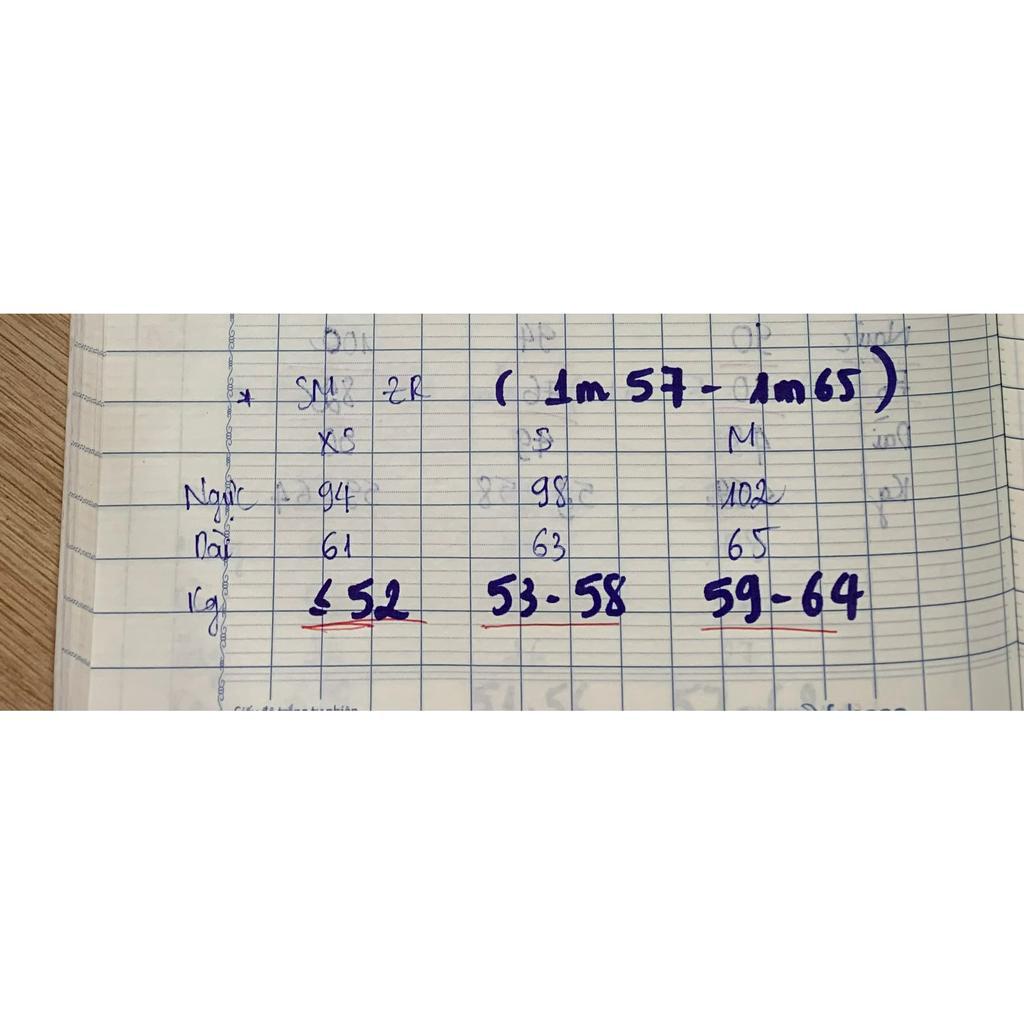 * SM ZR (1m57 - 1m65)
XS S M
Ngực 94 98 102
Dài 61 63 65
Kg ≤ 52 53 - 58 59 - 64